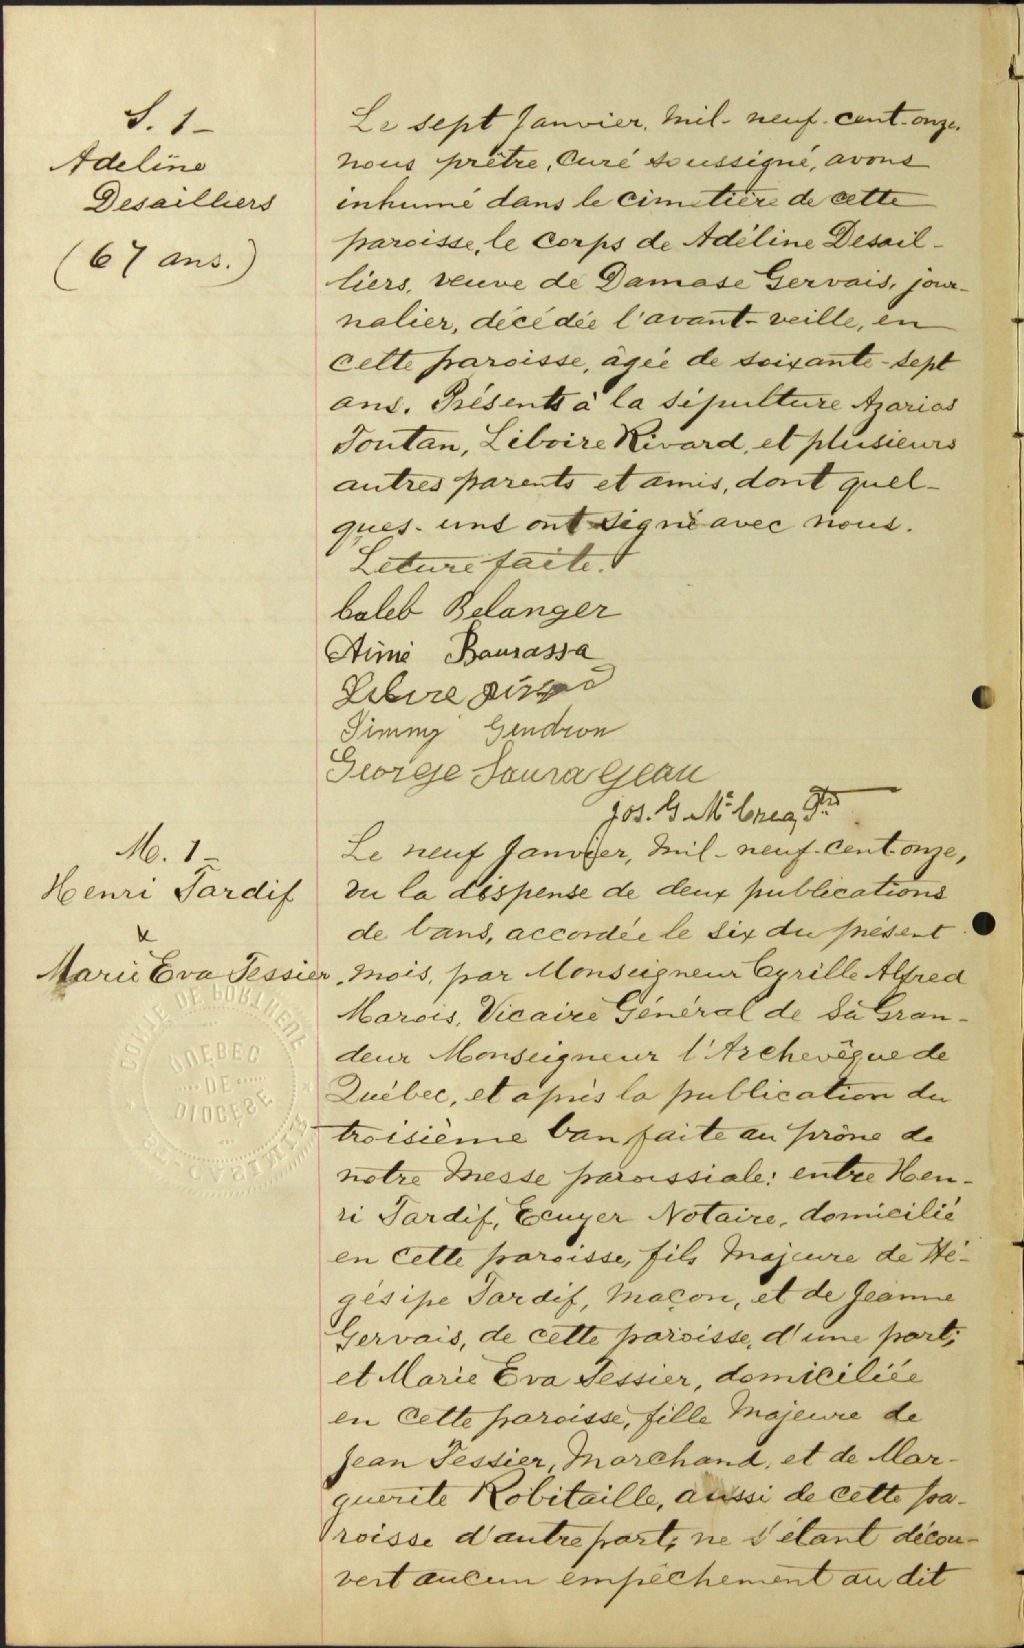 S. 1-
Adeline
Desailliers
(67 ans.)
Le sept Janvier, mil-neuf-cent-onze,
nous prêtre, Curé soussigné, avons
inhumé dans le cimetière de cette
paroisse, le corps de Adéline Desail-
liers, veuve de Damase Gervais, jour-
nalier, décédée l'avant-veille, en
cette paroisse, âgée de soixante-sept
ans. Présents à la sépulture Azarias
Toutan, Liboire Rivard, et plusieurs
autres parents et amis, dont quel-
ques-uns ont signé avec nous.
Leture faite.
Caleb Belanger
Aimé Baurassa
Jimmy Gendron
George Sauvageau
Jos. G. McCrea, Ptre
M. 1-
Henri Tardif
&
Marie Eva Tessier
Le neuf Janvier, mil-neuf-cent-onze,
vu la dispense de deux publications
de bans, accordée le six du présent
mois, par Monseigneur Cyrille Alfred
Marois, Vicaire Général de Sa Gran-
deur Monseigneur l'Archevêque de
Québec, et après la publication du
troisième ban faite au prône de
notre Messe paroissiale: entre Hen-
ri Tardif, Ecuyer Notaire, domicilié
en cette paroisse, fils Majeure de Hé-
gésipe Tardif, Maçon, et de Jeanne
Gervais, de cette paroisse, d'une part;
et Marie Eva Tessier, domiciliée
en cette paroisse, fille Majeure de
Jean Tessier, Marchand, et de Mar-
guerite Robitaille, aussi de cette pa-
roisse d'autre part; ne s'étant décou-
vert aucun empêchement au dit
COMTÉ DE PORTNEUF
QUÉBEC
DE
DIOCÈSE
ST-CASIMIR